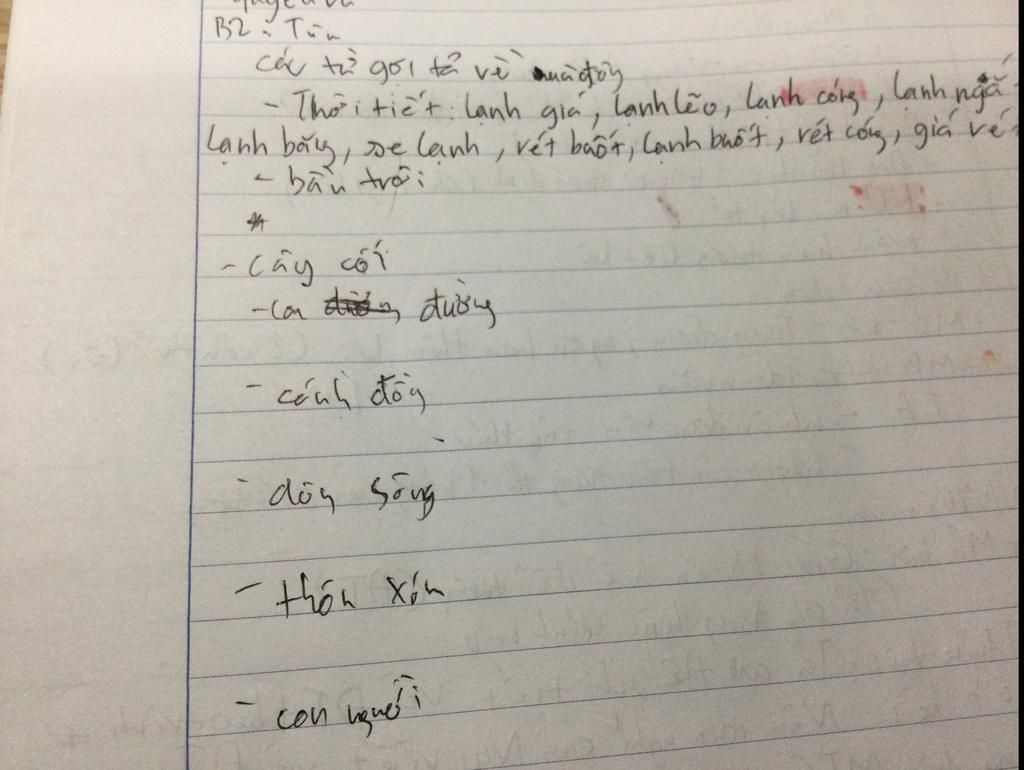 B2: Tìm
các từ gợi tả về mùa đông
- Thời tiết: lạnh giá, lạnh lẽo, lạnh cóng, lạnh ngắ
lạnh băng, se lạnh, rét buốt, lạnh buốt, rét cóng, giá ré
- bầu trời
- Cây cối
- con đường
- cánh đồng
- dòng sông
- thôn xóm
- con người